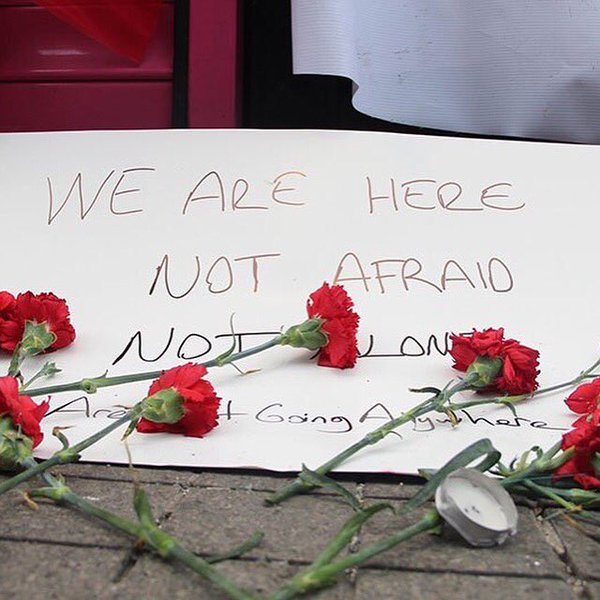 WE ARE HERE
NOT AFRAID
NOT ALONE
Going Anywhere